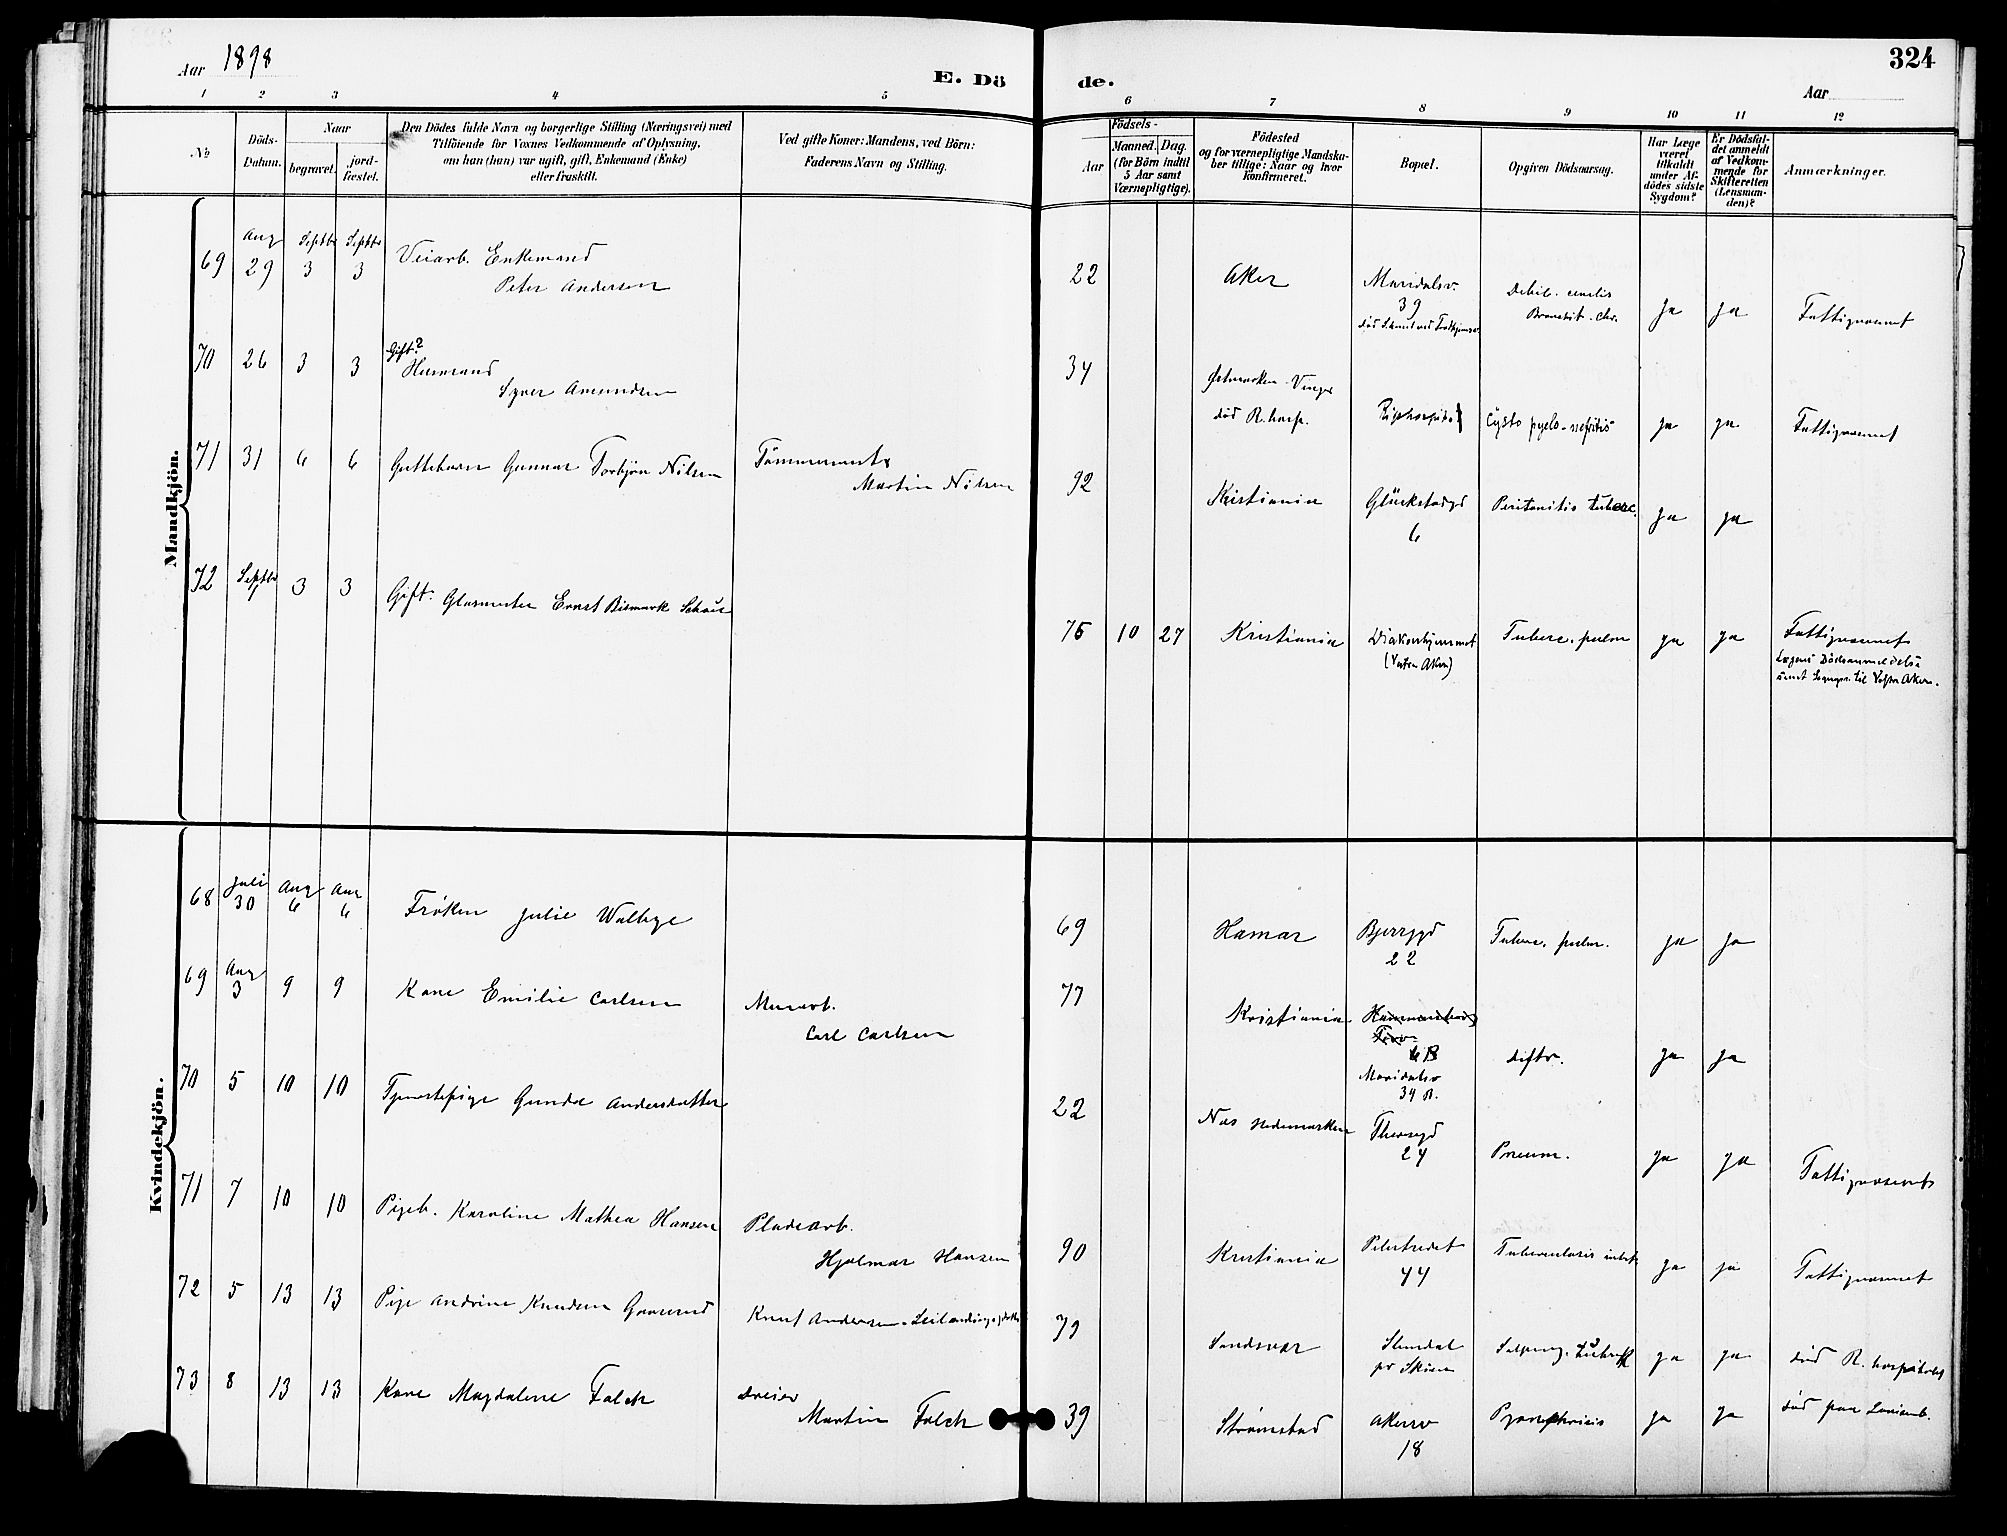 Aar 1898
E. Dö de.
324
Aar
1 2 3 4 5 6 7 8 9 10 11 12
No
Döds-
Datum.
Naar
begravet.
jord-
fæstet.
Den Dödes fulde Navn og borgerlige Stilling (Næringsvei) med
Tilföiende for Voxnes Vedkommende af Oplysning,
om han (hun) var ugift, gift, Enkemand (Enke)
eller fraskilt.
Ved gifte Koner: Mandens, ved Börn:
Faderens Navn og Stilling.
Födsels-
Aar
Maaned. Dag.
(for Börn indtil
5 Aar samt
Værnepligtige).
Födested
og for værnepligtige Mandska-
ber tillige: Naar og hvor
konfirmeret.
Bopæl.
Opgiven Dödsaarsag.
Har Læge
været
tilkaldt
under Af-
dödes sidste
Sygdom?
Er Dödsfal-
det anmeldt
af Vedkom-
mende for
Skifteretten
(Lensman-
den)?
Anmærkninger.
Mandkjön.
Aug Septbr Septbr
69 29 3 3 Veiarb. Enkemand
Peter Andersen
22 Aker Maridalsv.
39
Bronchit. chr.
ja ja Fattigvæsnet
70 26 3 3 Gift?
Husmand
Syver Amundsen
34 Vinger
död R. hosp. Rigshospital Cysto pyelo-nefritis ja ja Fattigvæsnet
71 31 6 6 Guttebarn Gunnar Torbjörn Nilsen
Tömmermand
Martin Nilsen
92 Kristiania Glückstadgd
6
Peritonitis tuberc. ja ja
72 Septbr
1 3 3 Gift. Glasmester Ernst Bismark
75 10 27 Kristiania Diakonhjemmet
(Vestre Aker)
Tuberc. pulm ja ja Fattigvæsnet
Lægens Dödsanmeldelse
til Vestre Aker.
Kvindekjön.
Juli Aug Aug
68 30 6 6 Fröken Julie Walbye
69 Hamar Bjerregd
22
Tuberc. pulm. ja ja
Aug
69 3 9 9 Kone Emilie Carlsen
Murarb.
Carl Carlsen
77 Kristiania
Maridalsv
39 B.
diftr. ja ja
70 5 10 10 Tjenestepige Gunda Andersdatter
22 Næs Hedemarken Theresegd
24
Pneum. ja ja Fattigvæsenet
71 7 10 10 Pigeb. Karoline Mathea Hansen
Pladearb.
Hjalmar Hansen
90 Kristiania Pilestredet
44
Tuberculosis ja ja Fattigvæsnet
72 5 13 13 Pige Andrine Knudsen
Knut Andersen
79 Sandsvær
pr Skien
Salping. ja ja död R. hospitalet
73 8 13 13 Kone Magdalene Falck
Dreier
Martin Falck
39 Strömstad Akersv
18
ja ja död paa